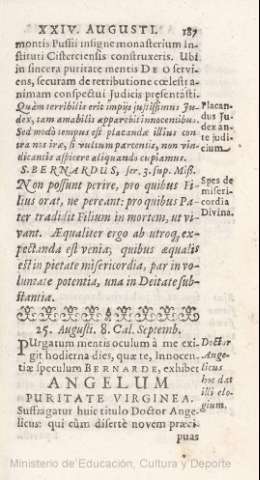 XXIV. AUGUSTI. 187
montis Pussii insigne monasterium In-
stituti Cisterciensis construxeris. Ubi
in sincera puritate mentis DEO servi-
ens, securam de retributione cœlesti a-
nimam conspectui Judicis præsentasti.
Quàm terribilis erit impijs justissimus Ju-
dex, tam amabilis apparebit innocentibus.
Sed modò tempus est placandæ illius con-
tra nos iræ, si vultum parcentis, non vin-
dicantis aspicere aliquando cupiamus.
Placan-
dus Ju-
dex an-
te judi-
cium
S. BERNARDUS, ser. 3. sup. Miß.
Non possunt perire, pro quibus Fi-
lius orat, ne pereant: pro quibus Pa-
ter tradidit Filium in mortem, ut vi-
vant. Æqualiter ergo ab utroq, ex-
pectanda est venia; quibus æqualis
est in pietate misericordia, par in vo-
luntate potentia, una in Deitate sub-
stantia.
Spes de
miseri-
cordia
Divina.
25. Augusti. 8. Cal. Septemb.
PUrgatum mentis oculum à me exi-
git hodierna dies, quæ te, Innocen-
tiæ speculum BERNARDE, exhibet
ANGELUM
PURITATE VIRGINEA.
Suffragatur huic titulo Doctor Ange-
licus: qui cùm disertè novem præci-
puas
Doctor
Ange-
licus
hoc dat
illi elo-
gium.
Ministerio de Educación, Cultura y Deporte